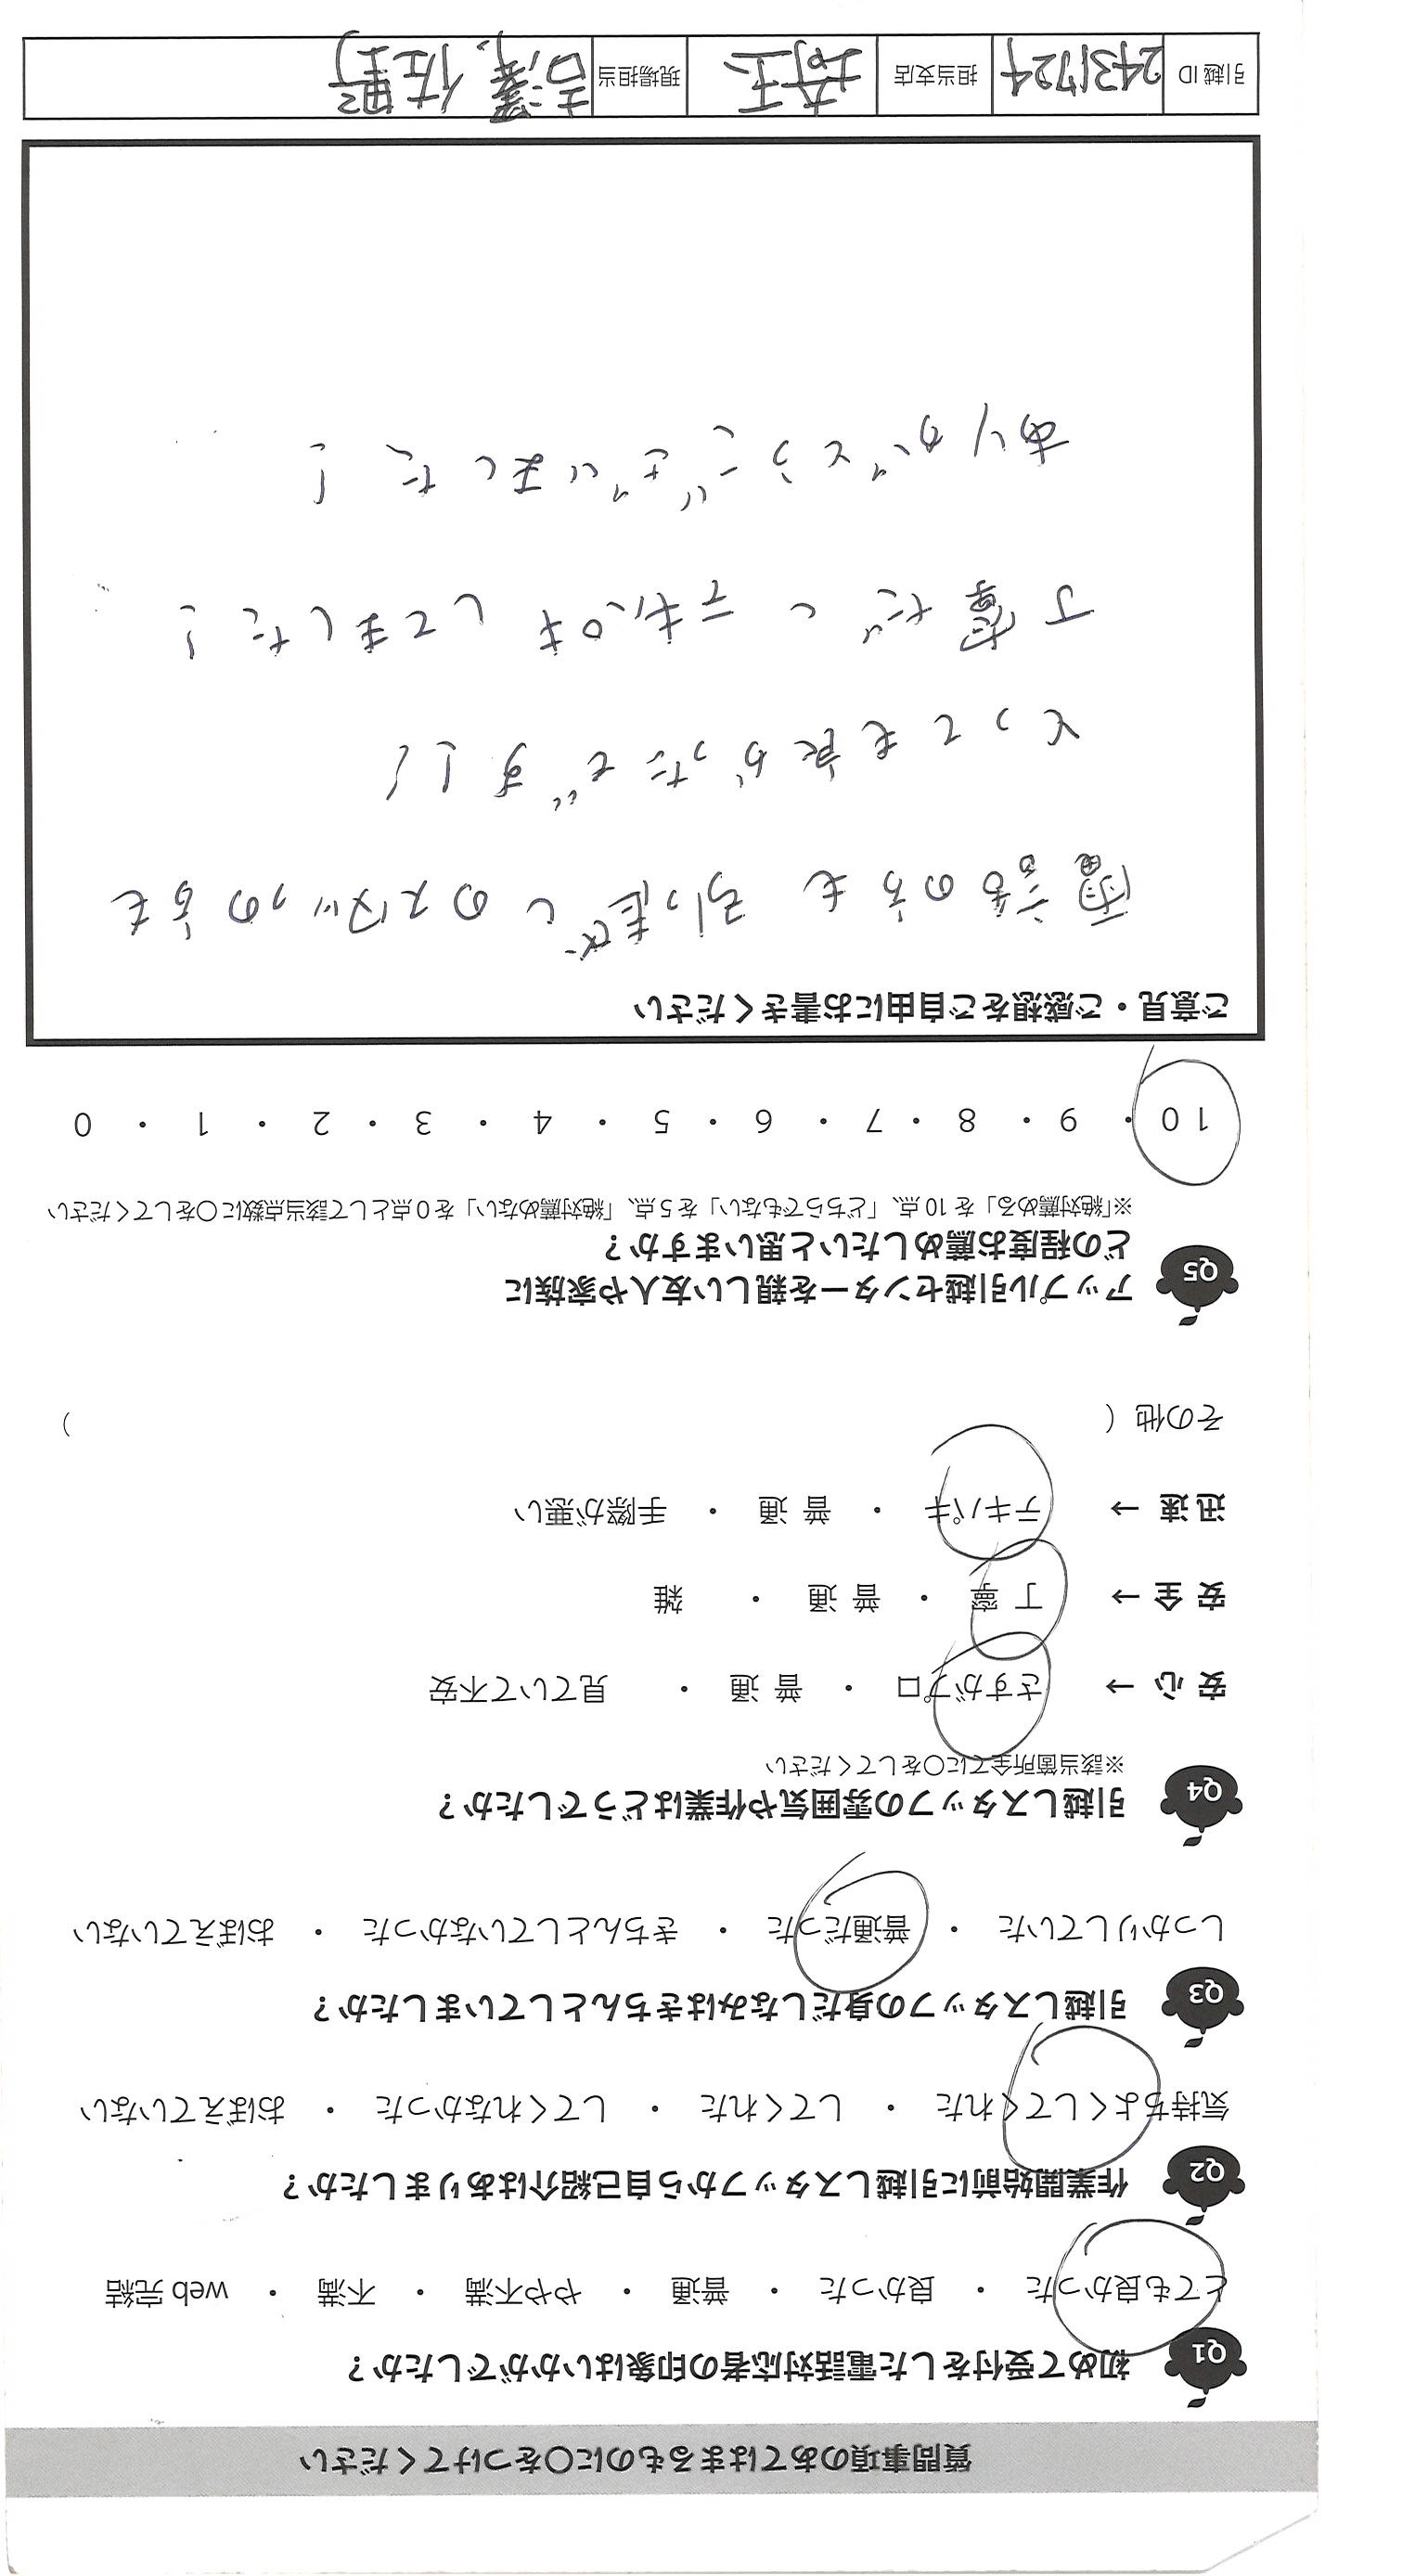 質問事項のあてはまるものに〇をつけてください
Q1 初めて受付をした電話対応者の印象はいかがでしたか?
とても良かった ・ 良かった ・ 普通 ・ やや不満 ・ 不満 ・ web 完結
Q2 作業開始前に引越しスタッフから自己紹介はありましたか?
気持ちよくしてくれた ・ してくれた ・ してくれなかった ・ おぼえていない
Q3 引越しスタッフの身だしなみはきちんとしていましたか?
しっかりしていた ・ 普通だった ・ きちんとしていなかった ・ おぼえていない
Q4 引越しスタッフの雰囲気や作業はどうでしたか?
※該当箇所全てに〇をしてください
安心 → さすがプロ ・ 普通 ・ 見ていて不安
安全 → 丁寧 ・ 普通 ・ 雑
迅速 → テキパキ ・ 普通 ・ 手際が悪い
その他 ( )
Q5 アップル引越センターを親しい友人や家族に
どの程度お薦めしたいと思いますか?
※「絶対薦める」を 10 点、「どちらでもない」を 5 点、「絶対薦めない」を 0 点として該当点数に〇をしてください
10 ・ 9 ・ 8 ・ 7 ・ 6 ・ 5 ・ 4 ・ 3 ・ 2 ・ 1 ・ 0
ご意見・ご感想をご自由にお書きください
電話のかたも 引っ越しのスタッフのかたも
とっても良かったです!!
丁寧だし テキパキしてました!
ありがとうございました!
引越 ID 2431724 担当支店 埼玉 現場担当 吉澤, 佐野